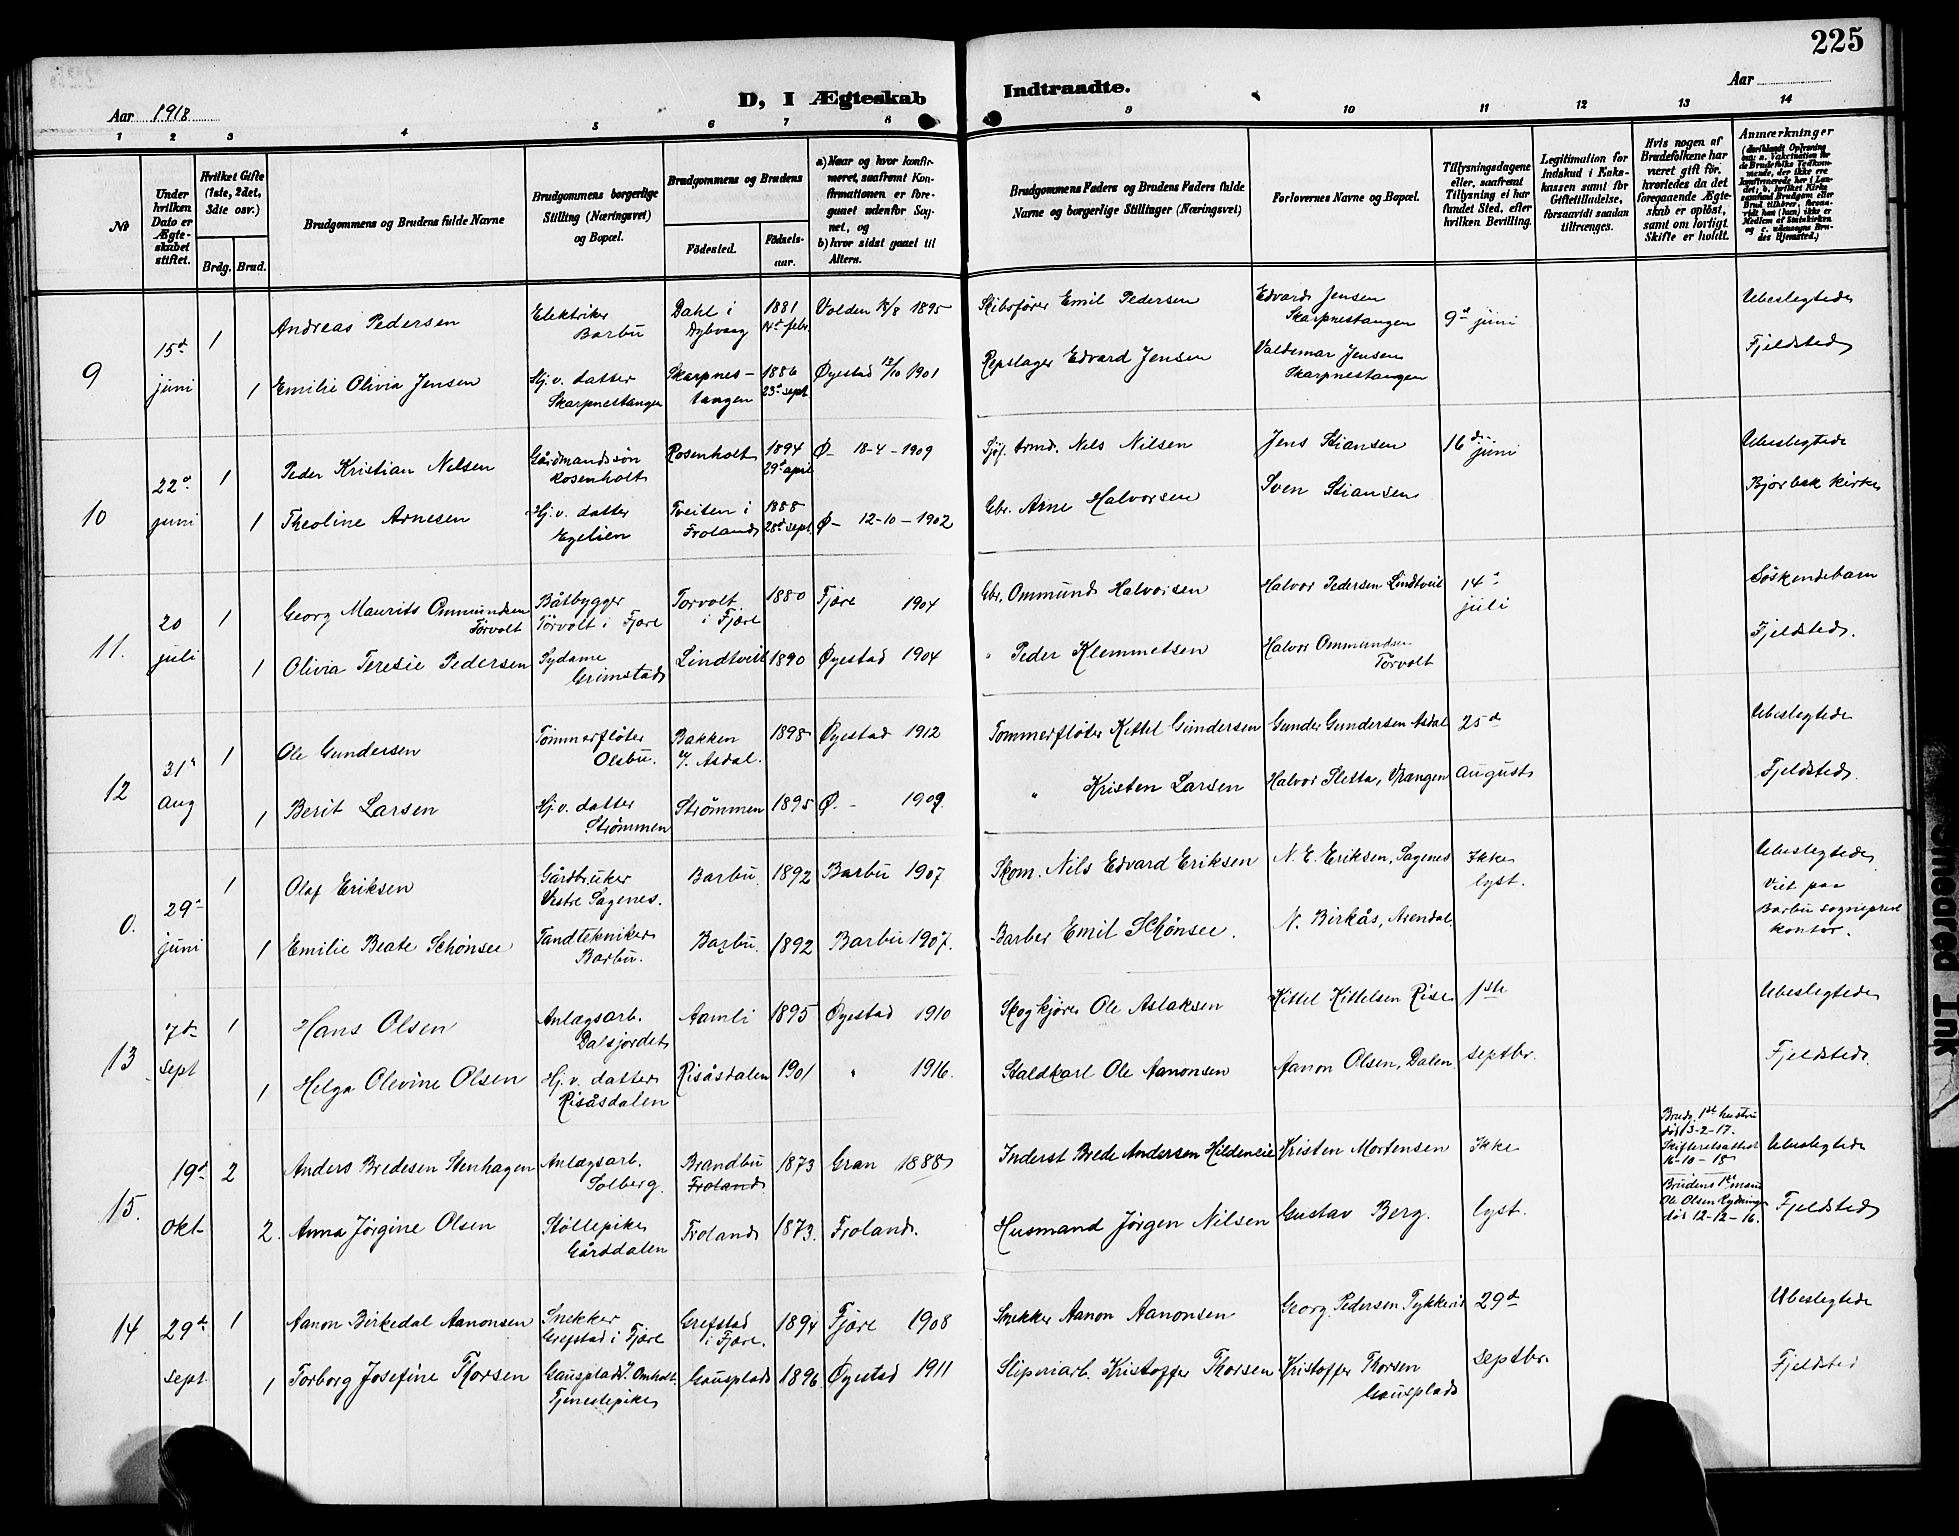 225
Aar 1918
D, I Ægteskab
Indtraadte.
Aar
1 2 3 4 5 6 7 8 9 10 11 12 13 14
No
Under hvilken Dato er Ægteskabet stiftet.
Hvilket Gifte (1ste, 2det, 3die osv.)
Brdg. Brud.
Brudgommens og Brudens fulde Navne
Brudgommens borgerlige Stilling (Næringsvei) og Bopæl.
Brudgommens og Brudens
Fødested. Fødselsaar.
a) Naar og hvor konfirmeret, saafremt Konfirmationen er foregaaet udenfor Sognet, og
b) hvor sidst gaaet til Alters.
Brudgommens Faders og Brudens Faders fulde Navne og borgerlige Stillinger (Næringsvei)
Forlovernes Navne og Bopæl.
Tillysningsdagene eller, saafremt Tillysning ei har fundet Sted, efter hvilken Bevilling.
Legitimation for Indskud i Enkekassen samt for Giftetilladelse, forsaavidt saadan tiltrænges.
Hvis nogen af Brudefolkene har været gift før, hvorledes da det foregaaende Ægteskab er opløst, samt om lovligt Skifte er holdt.
Anmærkninger
9 15d juni 1 Andreas Pedersen Elektriker Barbu Dahl i Dybvaag 1881 14d febr. Volden 1895 Skibsfører Emil Pedersen Edvard Jensen Skarpnestangen 9d juni Ubeslegtede
1 Emilie Olivia Jensen Hj.v. datter Skarpnestangen Skarpnestangen 1886 23d sept Øyestad 13/10 1901 Repslager Edvard Jensen Valdemar Jensen Skarpnestangen Fjeldsted
10 22d juni 1 Peder Kristian Nilsen Gårdmandssøn Rosenholt Rosenholt 1894 29d april Ø- 18-4-1909 Nils Nilsen Jens Stiansen 16d juni Ubeslegtede
1 Theoline Arnesen Hj.v. datter Egelien Tveiten i Froland 1888 28d sept Ø- 12-10-1902 Gbr. Arne Halvorsen Sven Stiansen Bjorbek kirke
11. 20 juli 1 Georg Maurits Ommundsen Törvolt Båtbygger Törvolt i Fjære Torvolt i Fjære 1880 Fjære 1904 Gbr. Ommund Halvorsen Halvor Pedersen Lindtveit 14d juli Søskendebarn
1 Olivia Teresie Pedersen Sydame Grimstad Lindtveit 1890 Øyestad 1904 " Peder Klemmetsen Halvor Ommundsen Törvolt Fjeldsted.
12 31d aug 1 Ole Gundersen Tømmerfløter Olsbu. Bakken v/. Asdal. 1898 Øyestad 1912 Tømmerfløter Kittel Gundersen Gunder Gundersen Asdal 25d August Ubeslegtede
1 Berit Larsen Hj.v. datter Strømmen Strømmen 1895 Ø.- 1909 " Kristen Larsen Halvor Sletta, Vrangen Fjeldsted.
0. 29d juni 1 Olaf Eriksen Gårdbruker Vestre Sagenes. Barbu 1892 Barbu 1907 Skom. Nils Edvard Eriksen N. E. Eriksen, Sagenes Ikke lyst. Ubeslegtede
1 Emilie Beate Schønsee Tandtekniker Barbu. Barbu. 1892 Barbu 1907. Barber Emil Schønsee. N. Birkås, Arendal. Viet paa Barbu sogneprest kontor.
13 7d sept 1 Hans Olsen Anlægsarb. Dalsjordet Aamli 1895 Øyestad 1910 Skogkjører Ole Aslaksen Kittel Kittelsen Rise 1ste septbr. Ubeslegtede
1 Helga Olivine Olsen Hj.v. datter Risåsdalen Risåsdalen 1901 " 1916. Staldkarl Ole Aanonsen Aanon Olsen, Dalen Fjeldsted.
15. 19d okt 2 Anders Bredesen Stenhagen Anlægsarb. Solberg. Brandbu Froland 1873 Gran 1888 Inderst Brede Andersen Hildeneie Kristen Mortensen Ikke lyst. Brudg. 1ste hustru død 13-2-17. Skifteretsattest 16-10-18 Ubeslegtede
2. Anna Jørgine Olsen Støllepike Gårddalen Froland 1873. Froland. Husmand Jørgen Nilsen Gustav Berg. Brudens 1ste mand Ole Olsen Rydninger død 12-12-16. Fjeldsted
14 29d sept 1 Aanon Birkedal Aanonsen Snekker Grefstad i Fjære Grefstad i Fjære. 1894 Fjære 1908 Snekker Aanon Aanonsen Georg Pedersen 29d septbr. Ubeslegtede
1 Torborg Josefine Thorsen Gausplads Tjenestepike Gausplads 1896 Øyestad 1911 Sliperiarb. Kristoffer Thorsen Kristoffer Thorsen Gausplads Fjeldsted